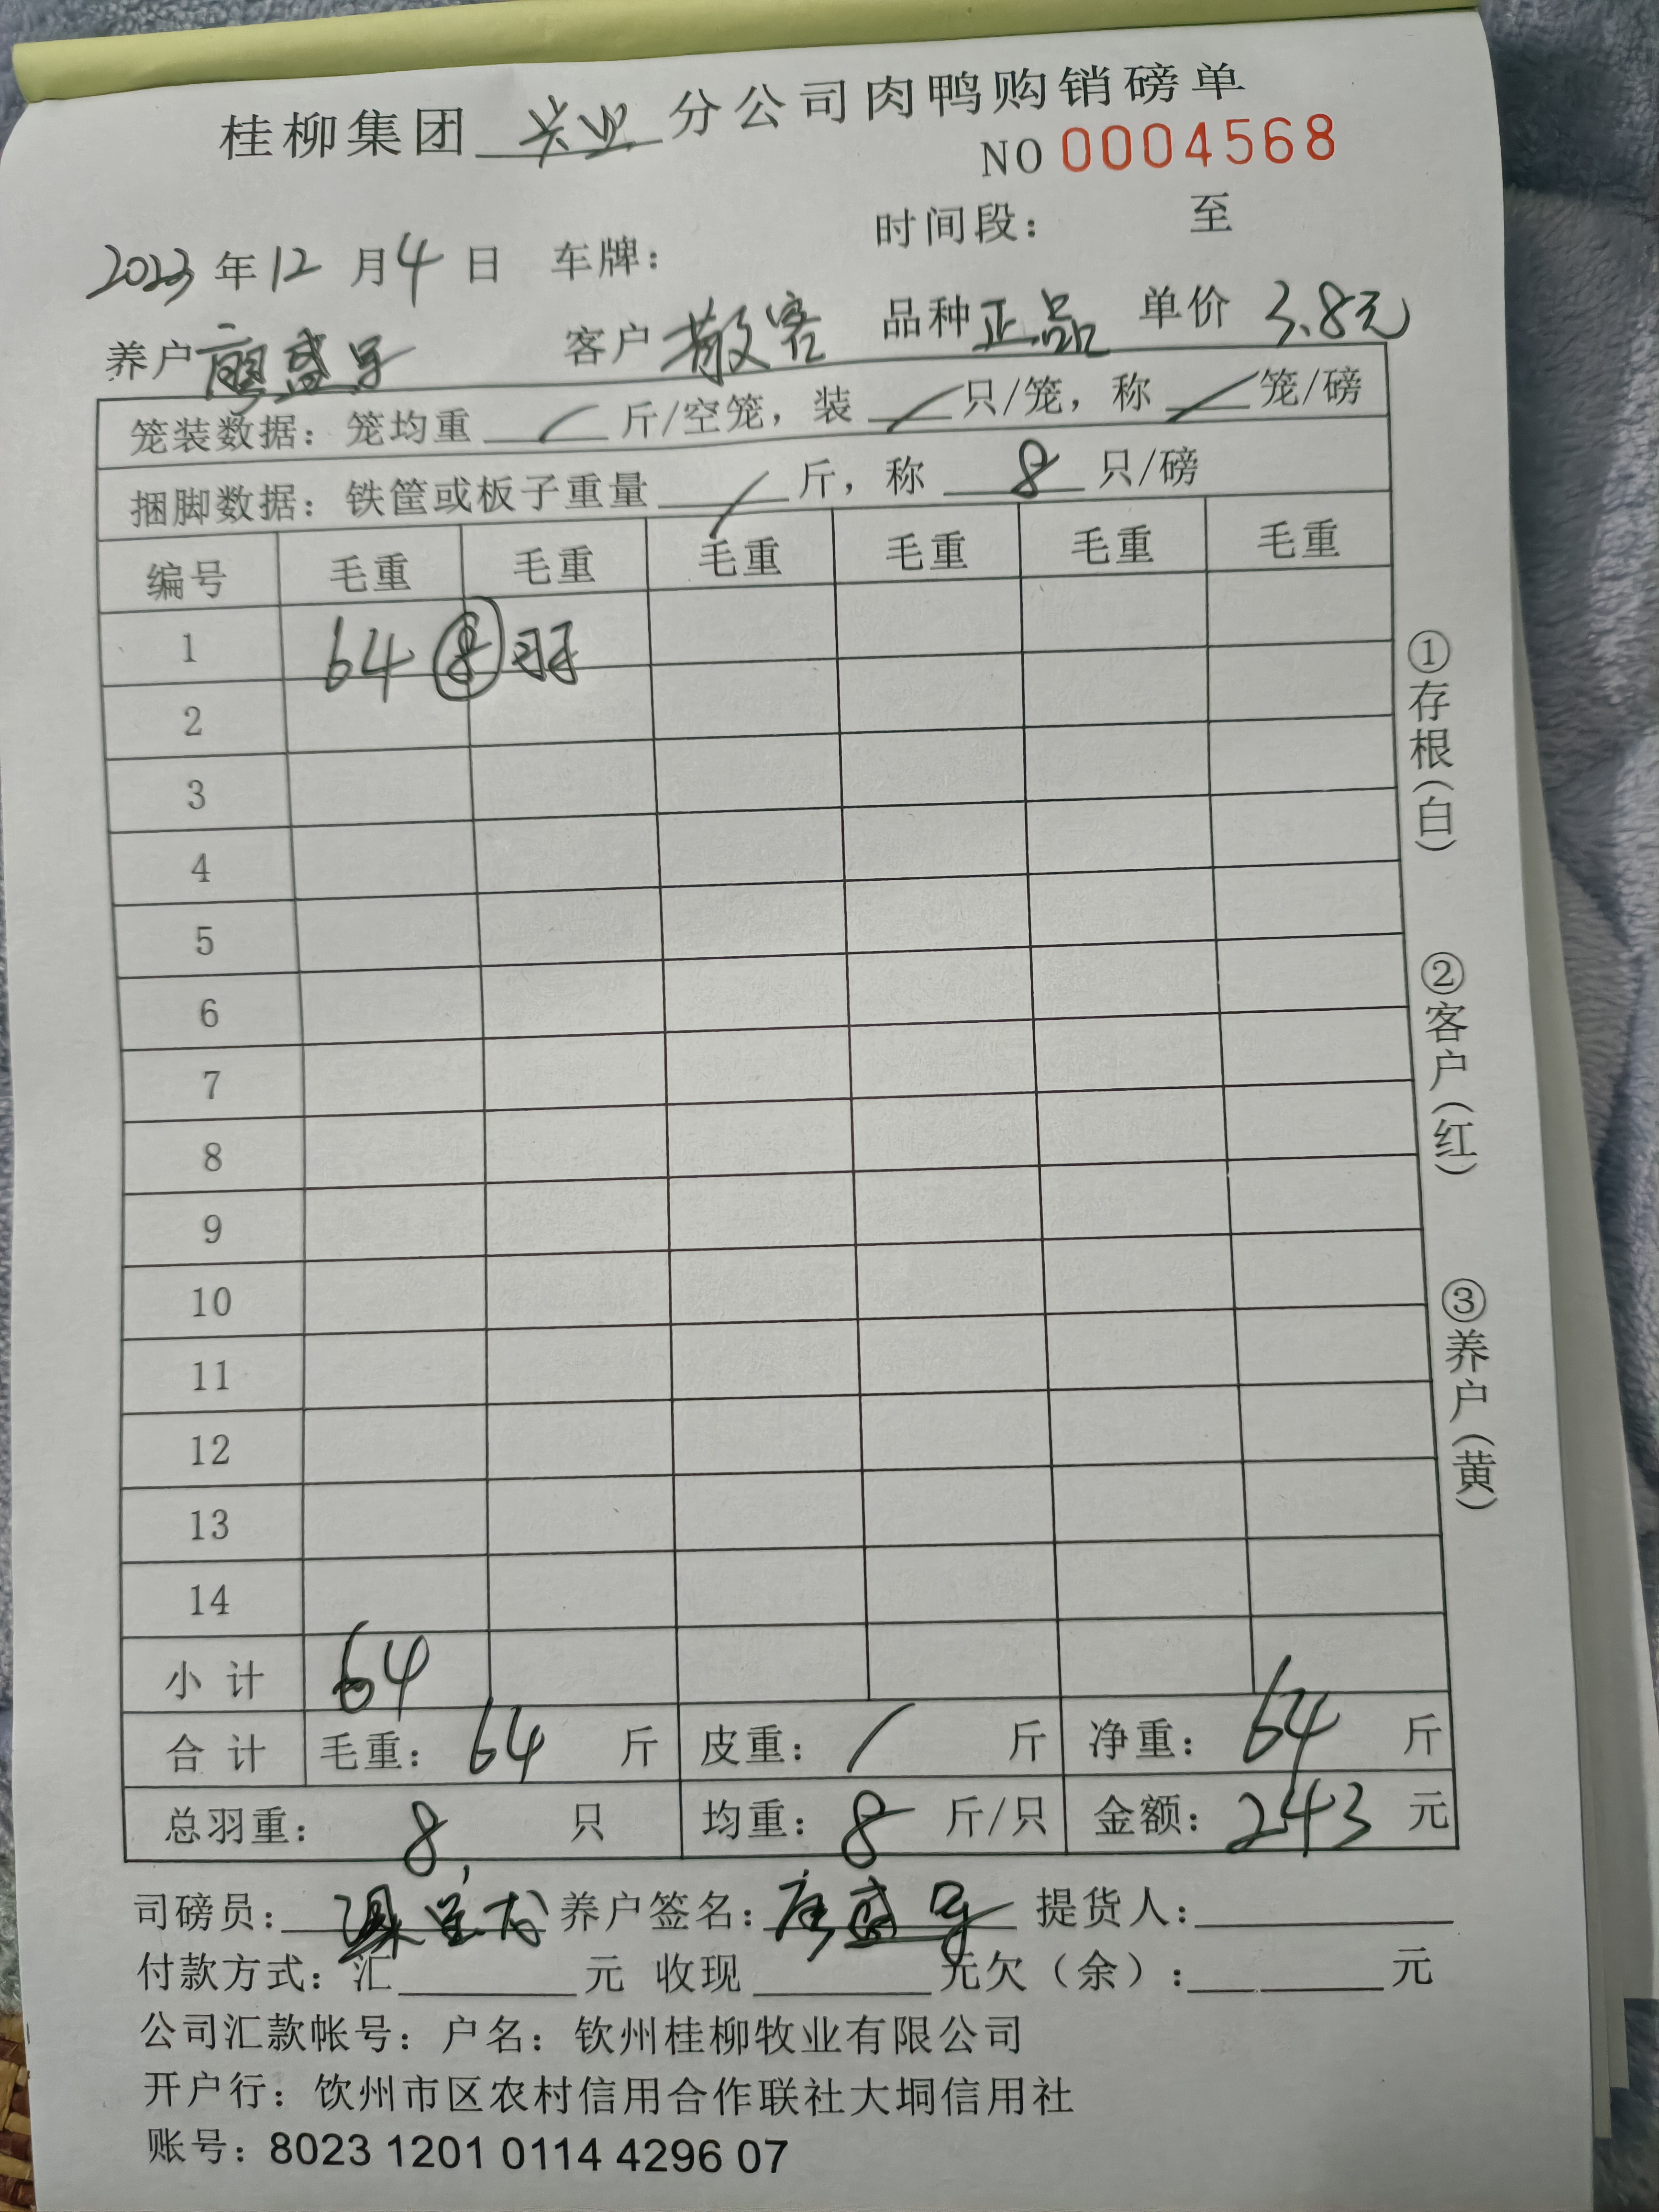 桂柳集团 兴业 分公司肉鸭购销磅单
NO 0004568
时间段： 至
2023 年 12 月 4 日 车牌：
养户 廖盛 客户 散客 品种 正品 单价 3.8元
笼装数据：笼均重 / 斤/空笼，装 / 只/笼，称 / 笼/磅
捆脚数据：铁筐或板子重量 / 斤，称 8 只/磅
编号 毛重 毛重 毛重 毛重 毛重 毛重
1 64 ⑧羽
2
3
4
5
6
7
8
9
10
11
12
13
14
小计 64
合计 毛重：64 斤 皮重：/ 斤 净重：64 斤
总羽重：8 只 均重：8 斤/只 金额：243 元
司磅员： 养户签名： 盛 提货人：
付款方式：汇 元 收现 元欠（余）： 元
公司汇款帐号：户名：钦州桂柳牧业有限公司
开户行：饮州市区农村信用合作联社大垌信用社
账号：8023 1201 0114 4296 07
①存根（白）
②客户（红）
③养户（黄）